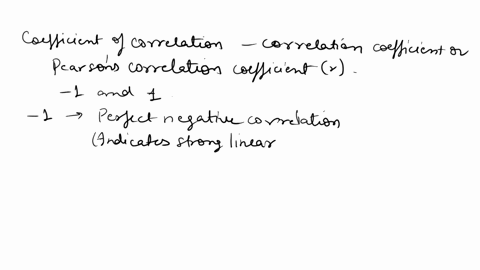 Coefficient of correlation – correlation coefficient or
Pearson's correlation coefficient (r).
-1 and 1
-1 → Perfect negative correlation
(Indicates strong linear